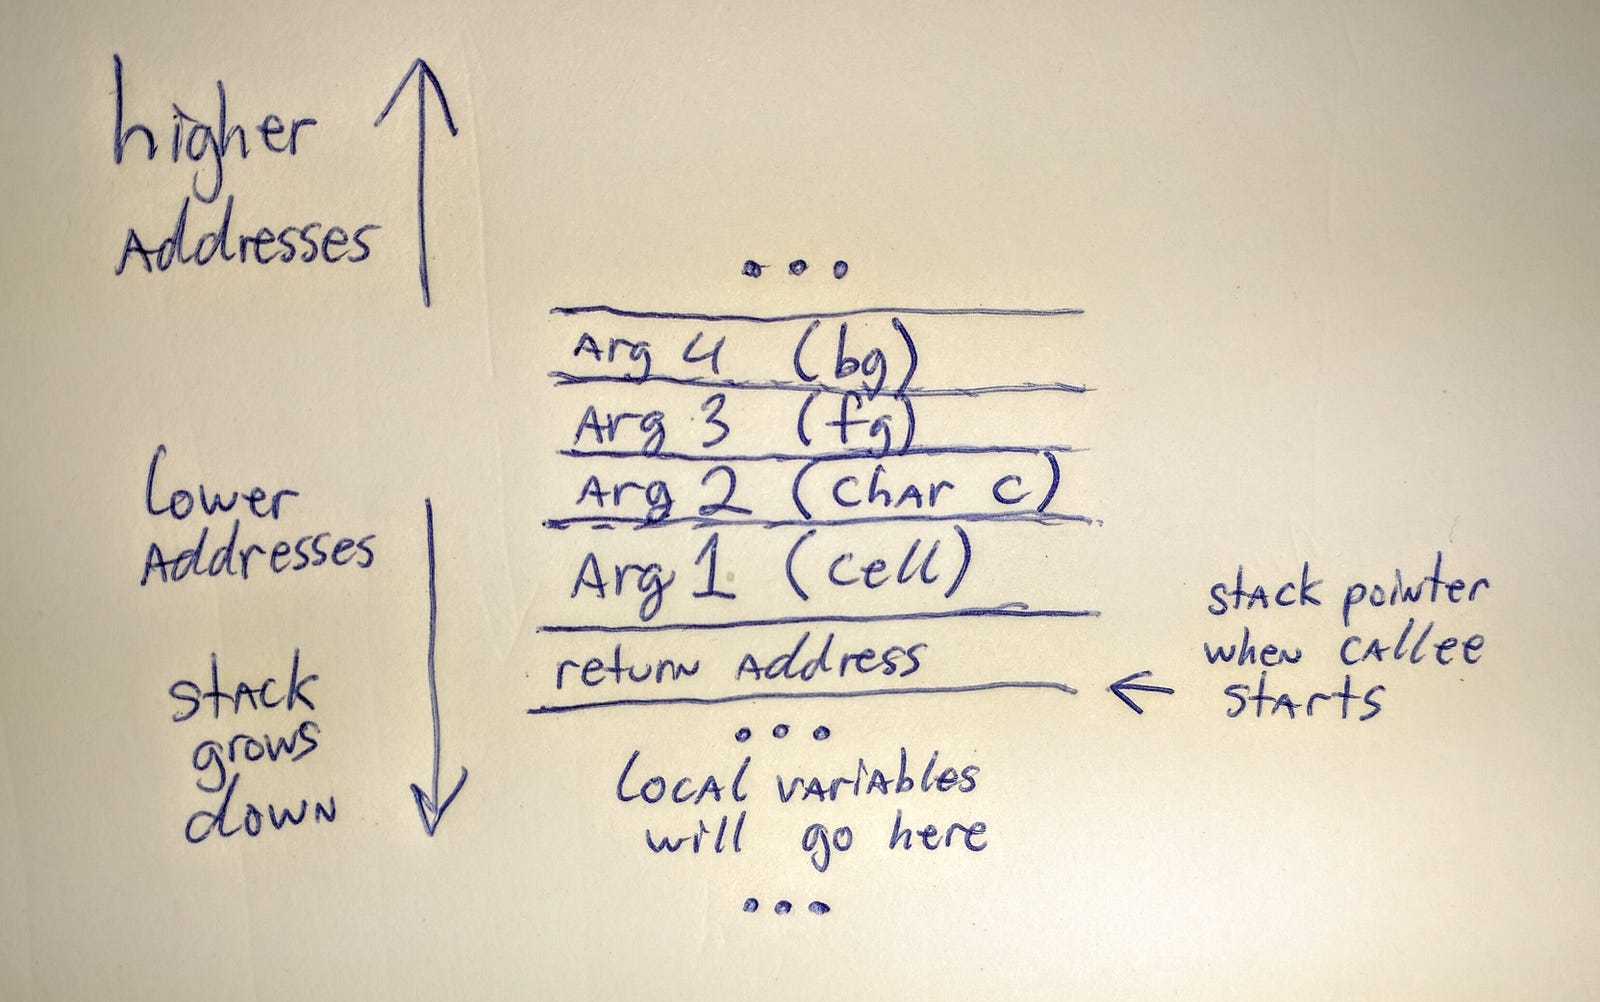 higher
Addresses
...
Arg 4 (bg)
Arg 3 (fg)
Arg 2 (char c)
Arg 1 (cell)
return Address
...
local variables
will go here
...
lower
Addresses
stack
grows
down
stack pointer
when callee
starts